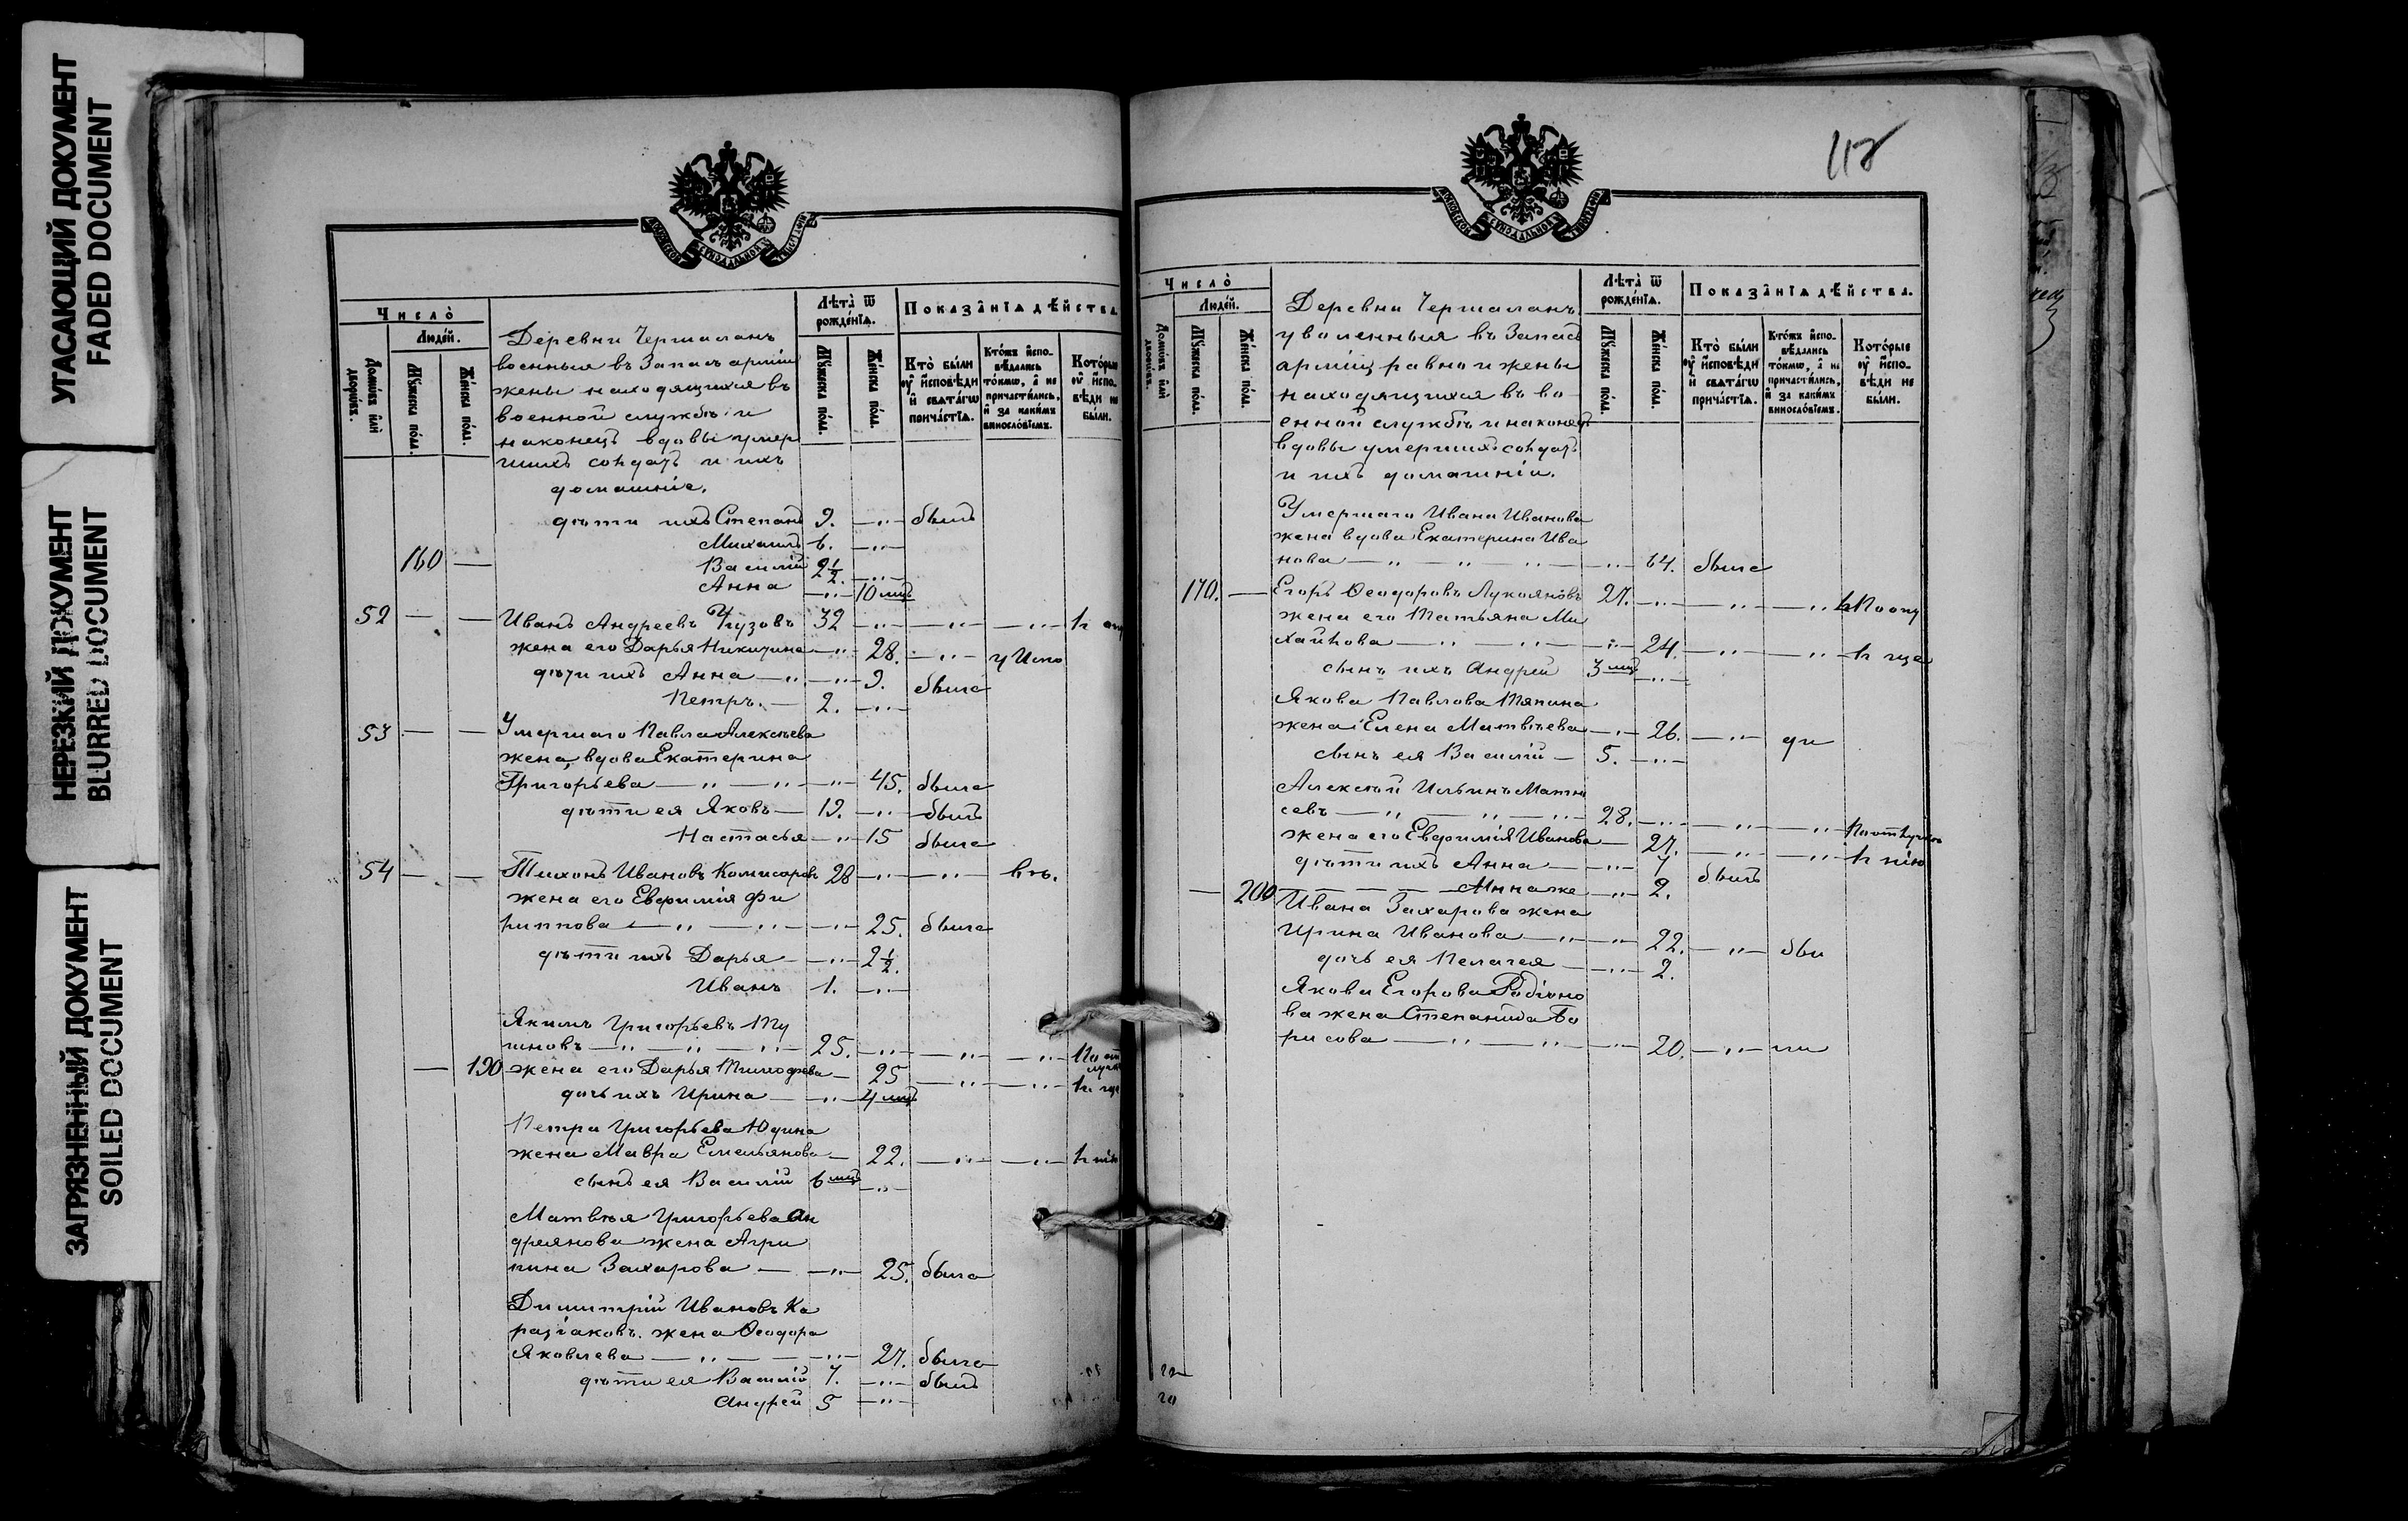 УГАСАЮЩИЙ ДОКУМЕНТ
FADED DOCUMENT
НЕРЕЗКИЙ ДОКУМЕНТ
BLURRED DOCUMENT
ЗАГРЯЗНЕННЫЙ ДОКУМЕНТ
SOILED DOCUMENT
Число̀
Людéй.
Домѡвъ или дворѡвъ.
Мꙋжеска полꙋ.
Женска полꙋ.
Лѣта̀ ѿ рождéнїѧ.
Мꙋжеска полꙋ.
Женска полꙋ.
Показанїѧ дѣйства
Кто̀ были оу исповѣди и свѧтагѡ причастїѧ.
Ктожъ исповѣдались токмѡ, а не причастились, и за какимъ винословїемъ.
Которые оу исповѣди не были.
Деревни Чершаланъ
военныя въ Запасъ арміи
жены находящихся въ
военной службѣ и
наконецъ вдовы умер
шихъ солдатъ и ихъ
домашніе.
дѣти ихъ Степанъ 9. —"— былъ
Михаилъ 6. —"—
160 — Василій 2½. —"—
Анна —"— 10 мѣс
52 — — Иванъ Андреевъ 32 —"— —"— —"—
жена его Дарья Никитина —"— 28. —"—
дѣти ихъ Анна —"— 9. была
Петръ. — 2. —"—
53 — — Умершаго Павла Алексѣева
жена вдова Екатерина
Григорьева —"— —"— 45. была
дѣти ея Яковъ — 19. —"— былъ
Настасья —"— 15 была
54 — — Тихонъ Ивановъ Комисаровъ 28 —"— —"—
жена его Евфимія Фи
липпова —"— —"— 25. была
дѣти ихъ Дарья —"— 2½.
Иванъ 1. —"—
Якимъ Григорьевъ Ту
шновъ —"— —"— 25. —"— —"— —"—
— 190 жена его Дарья Тимофѣева — 25 —"— —"—
дочь ихъ Ирина —"— 4 мѣс
Петра Григорьева Юдина
жена Мавра Емельянова — 22. —"— —"—
сынъ ея Василій 6 мѣс —"—
Матвѣя Григорьева Ан
дреянова жена Агри
пина Захарова —"— 25. была
Димитрій Ивановъ Ка
жена Ѳеодора
Яковлева —"— —"— 27. была
дѣти ея Василій 7. —"— былъ
Андрей 5 —"—
Число̀
Людéй.
Домѡвъ или дворѡвъ.
Мꙋжеска полꙋ.
Женска полꙋ.
Лѣта̀ ѿ рождéнїѧ.
Мꙋжеска полꙋ.
Женска полꙋ.
Показанїѧ дѣйства.
Кто̀ были оу исповѣди и свѧтагѡ причастїѧ.
Ктожъ исповѣдались токмѡ, а не причастились, и за какимъ винословїемъ.
Которые оу исповѣди не были.
Деревни Чершаланъ
уволенныя въ Запасъ
арміи, равно и жены
находящихся въ во-
енной службѣ и наконецъ
вдовы умершихъ солдатъ
и ихъ домашніи.
Умершаго Ивана Иванова
жена вдова Екатерина Ива
нова —"— —"— 64. была
170. — Егоръ Ѳеодоровъ Лукояновъ 27. —"— —"— —"—
жена его Татьяна Ми
хайлова —"— —"— 24. —"— —"—
сынъ ихъ Андрей 3 мѣс —"—
Якова Павлова Тяпина
жена Елена Матвѣева —"— 26. —"—
сынъ ея Василій — 5. —"—
Алексѣй Ильинъ Матю
севъ —"— —"— 28. —"— —"— —"— По отлучкѣ
жена его Евфимія Иванова — 27. —"— —"—
дѣти ихъ Анна —"— 7 былъ
— 200 Анна же —"— 2.
Ивана Захарова жена
Ирина Иванова —"— —"— 22. —"—
дочь ея Пелагея —"— 2.
Якова Егорова Радіоно
ва жена Степанида Бо
рисова —"— —"— 20. —"—